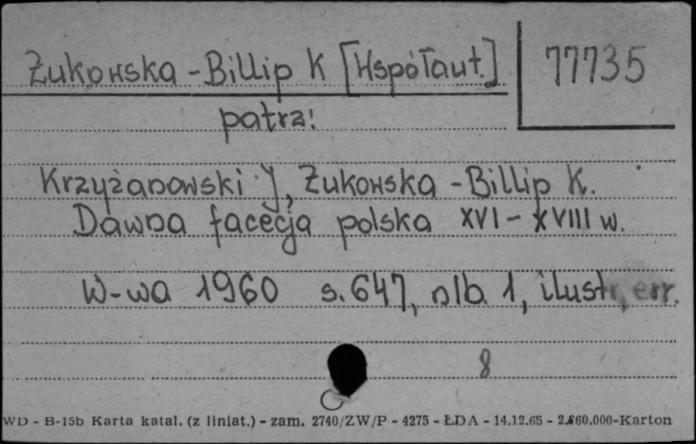 Żukowska - Billip K [Współaut.]
77735
patrz:
Krzyżanowski J, Żukowska - Billip K.
Dawna facecja polska XVI - XVIII w.
W-wa 1960 s. 647, nlb. 1, ilustr, err.
8
WD - B-15b Karta katal. (z liniat.) - zam. 2740/ZW/P - 4275 - ŁDA - 14.12.65 - 2.860.000-Karton